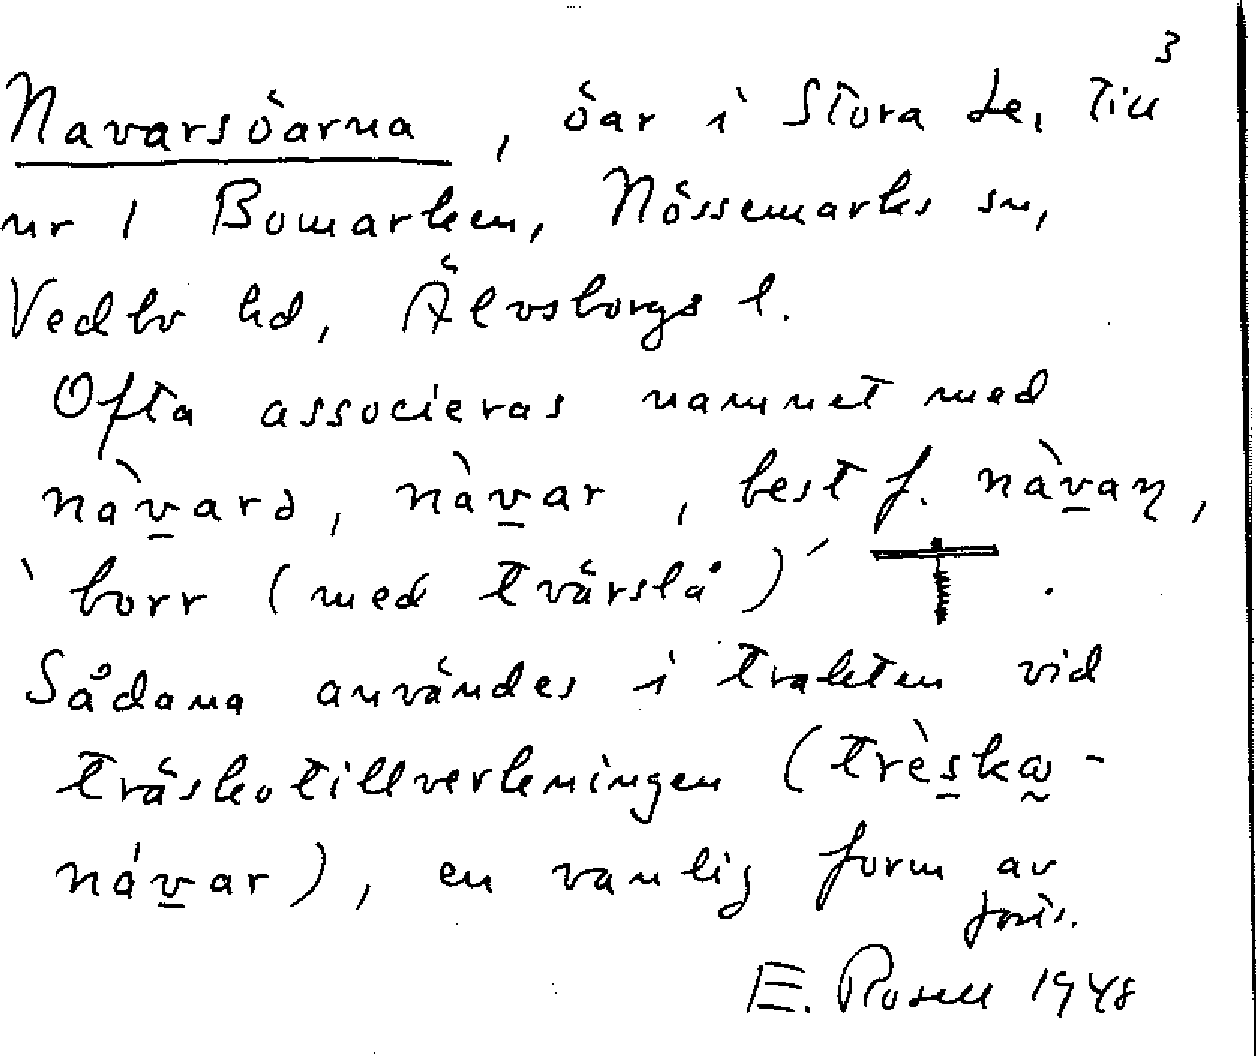 3
Navarsöarna, öar i Stora Le, till
nr 1 Bomarken, Nössemarks sn,
Vedbo hd, Älvsborgs l.
Ofta associeras namnet med
nàvard, nàvar, best f. nàvaṇ,
‵borr (med tvärslå)′ .
Sådana användes i trakten vid
träskotillverkningen (trèskω-
návar), en vanlig form av
E. Rosell 1948